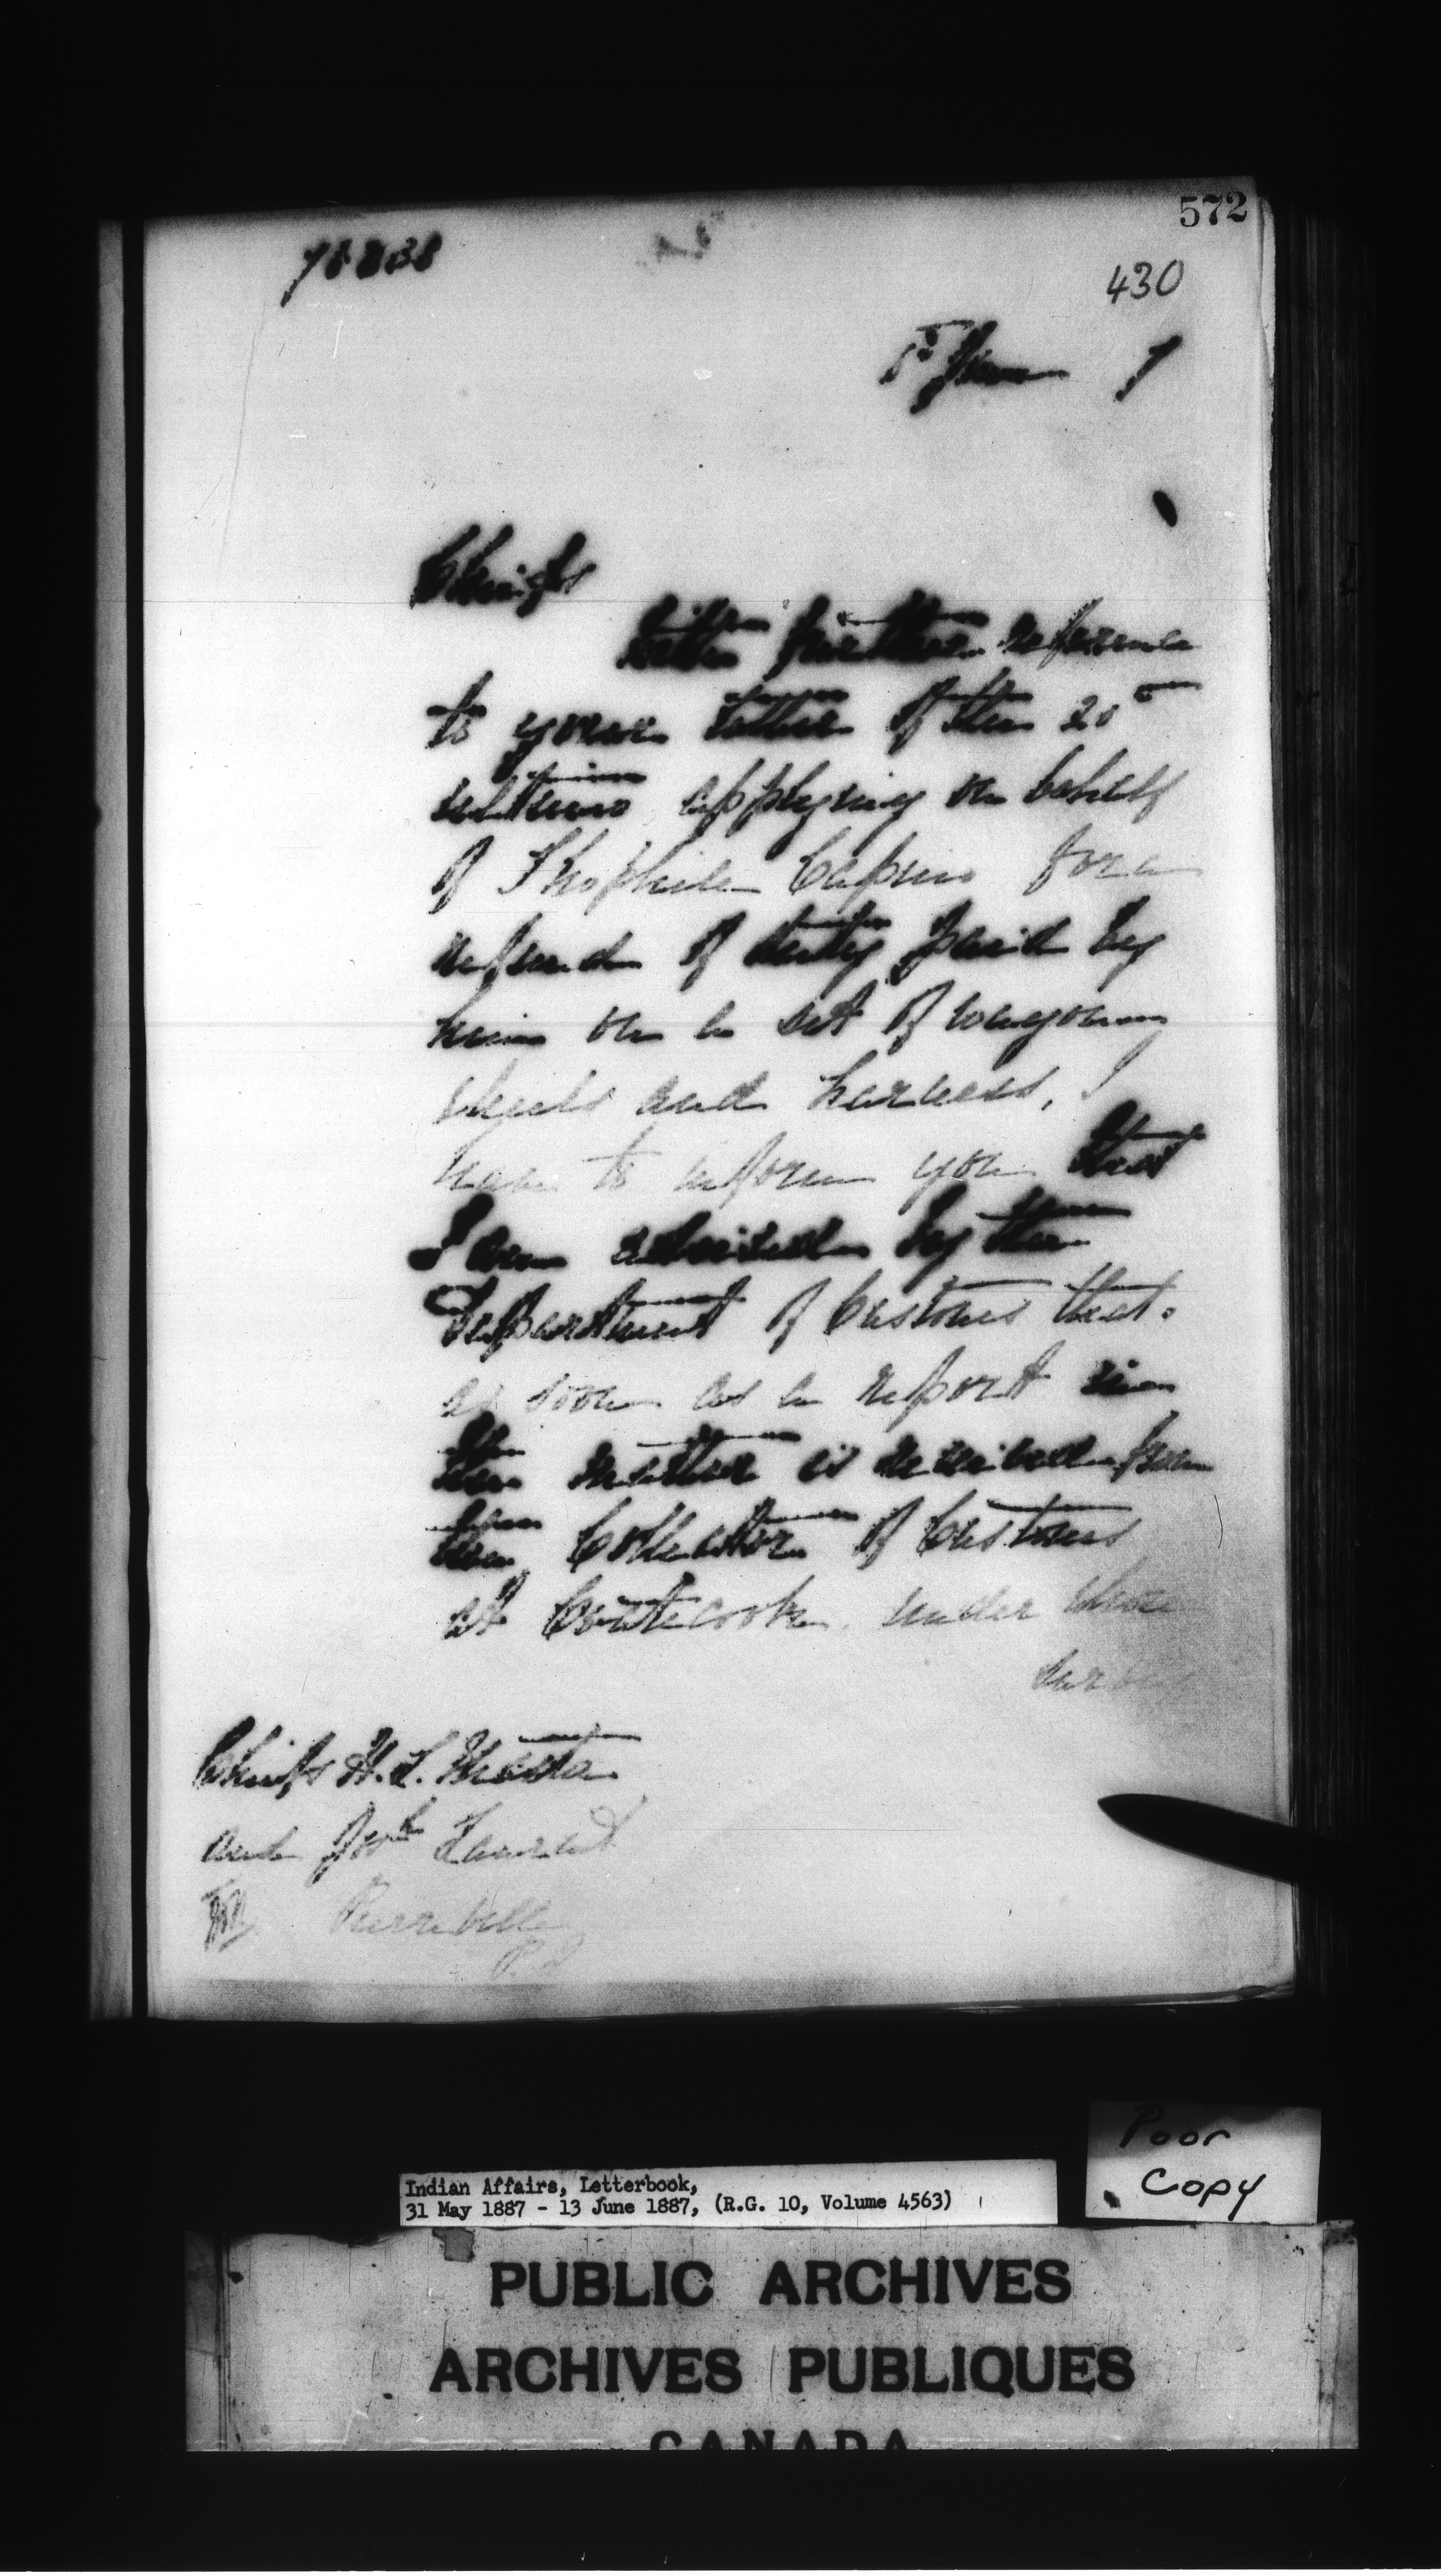 572
430
June 7
Chiefs
With further reference
to your letter of the 20th
ultimo applying on behalf
of Theophile for a
refund of duty paid by
him on a set of waggon
wheels and harness, I
have to inform you that
I am advised by the
Department of Customs that
as soon as a report in
the matter is received from
the Collector of Customs
at Coaticook under whose
Chiefs H. L. Masta
and Josh Laurent
Pierreville
P.Q.
Poor
Copy
Indian Affairs, Letterbook,
31 May 1887 - 13 June 1887, (R.G. 10, Volume 4563)
PUBLIC ARCHIVES
ARCHIVES PUBLIQUES
CANADA